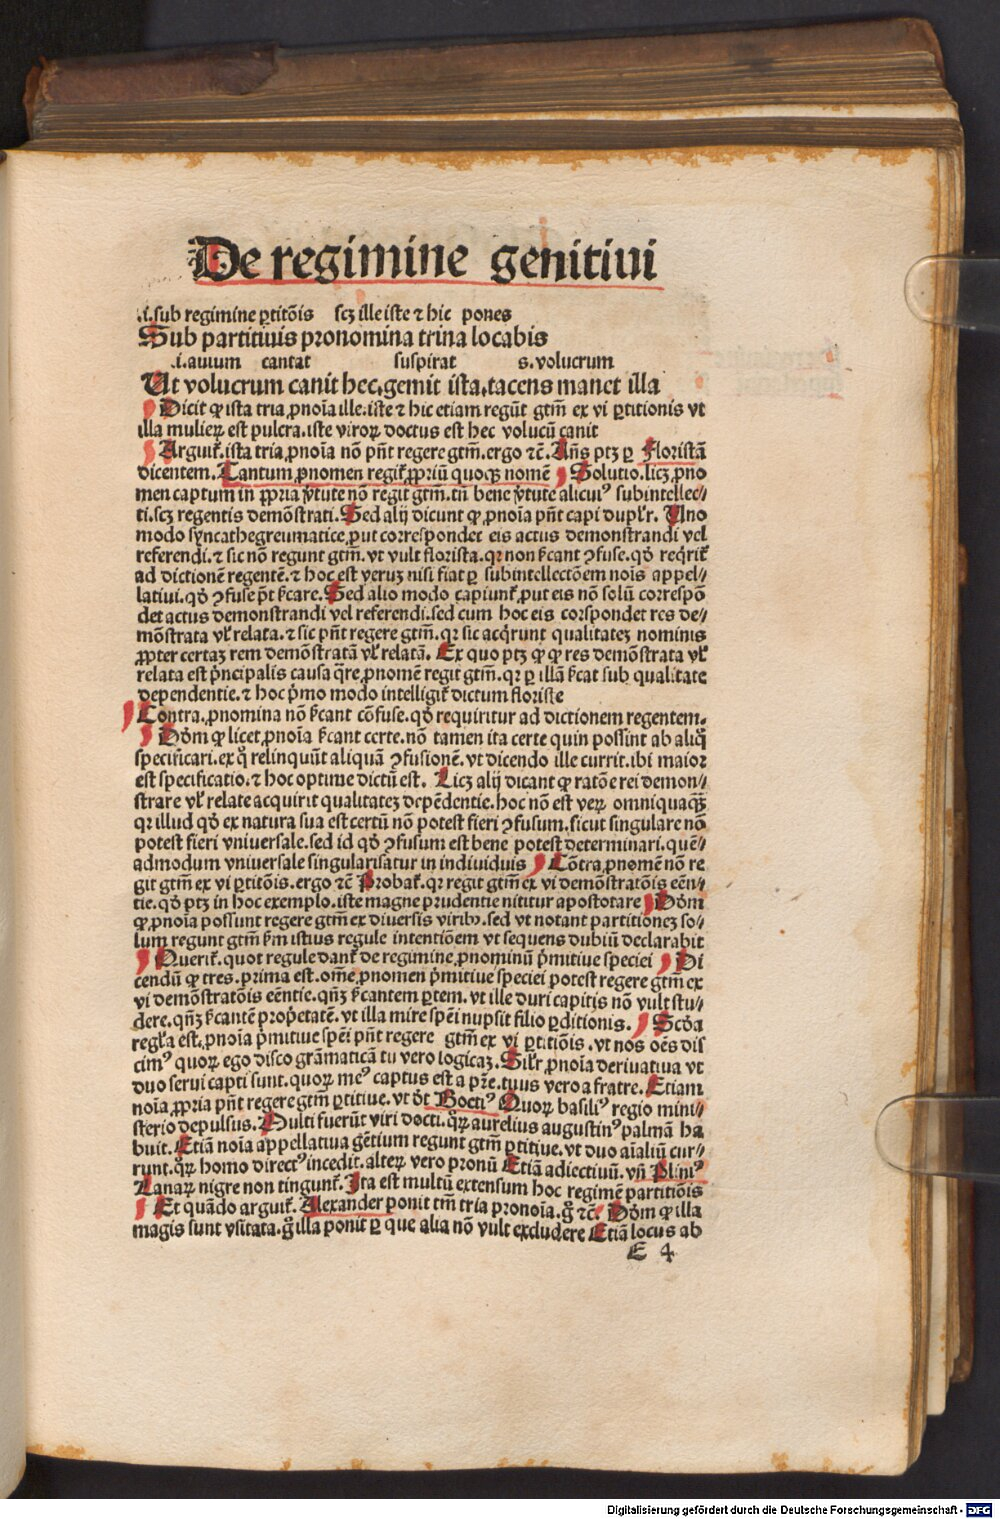 De regimine genitiui
.i. sub regimine ꝑtitōis scꝫ ille iste ⁊ hic pones
Sub partitiuis pronomina trina locabis
.i. auium cantat suspirat s. volucrum
Ut volucrum canit hec. gemit ista. tacens manet illa
Dicit ꝙ ista tria ꝓnoīa ille. iste ⁊ hic etiam regūt gtm̄ ex vi ꝑtitionis vt
illa mulieꝝ est pulcra. iste viroꝝ doctus est hec volucū canit
Arguit᷑. ista tria ꝓnoīa nō pn̄t regere gtm̄. ergo ⁊c̄. An̄s ptꝫ ꝑ Floristā
dicentem. Tantum ꝓnomen regit᷑ ꝓpriū quoqꝫ nomē Solutio. licꝫ ꝓno
men captum in ꝓpria v̄tute nō regit gtm̄. tn̄ bene v̄tute alicuiꝰ subintellec⸗
ti. scꝫ regentis demōstrati. Sed alij dicunt ꝙ ꝓnoīa pn̄t capi dupl'r. Uno
modo syncathegreumatice ꝓut correspondet eis actus demonstrandi vel
referendi. ⁊ sic nō regunt gtm̄. vt vult florista. qꝛ non s̄cant ꝯfuse. qd̓ reqͥrit᷑
ad dictionē regentē. ⁊ hoc est veruꝫ nisi fiat ꝑ subintellectōem nois appel⸗
latiui. qd̓ ꝯfuse pōt s̄care. Sed alio modo capiunt᷑ ꝓut eis nō solū correspō
det actus demonstrandi vel referendi. sed cum hoc eis corspondet res de⸗
mōstrata vl' relata. ⁊ sic pn̄t regere gtm̄. qꝛ sic acqͥrunt qualitateꝫ nominis
ꝓpter certaꝫ rem demōstratā vl' relatā. Ex quo ptꝫ ꝙ ꝙ res demōstrata vl'
relata est pͥncipalis causa qͣre ꝓnomē regit gtm̄. qꝛ ꝑ illā s̄cat sub qualitate
dependentie. ⁊ hoc pͥmo modo intelligit᷑ dictum floriste
Contra. ꝓnomina nō s̄cant cōfuse. qd̓ requiritur ad dictionem regentem.
Dd̓m ꝙ licet ꝓnoīa s̄cant certe. nō tamen ita certe quin possint ab aliqͦ
specificari. ex qͦ relinquūt aliquā ꝯfusionē. vt dicendo ille currit. ibi maior
est specificatio. ⁊ hoc optime dictū est. Licꝫ alij dicant ꝙ ratōe rei demon⸗
strare vl' relate acquirit qualitateꝫ depēdentie. hoc nō est veꝝ omniquaqꝫ
qꝛ illud qd̓ ex natura sua est certū nō potest fieri ꝯfusum. sicut singulare nō
potest fieri vniuersale. sed id qd̓ ꝯfusum est bene potest determinari. quē⸗
admodum vniuersale singularisatur in indiuiduis Cōtra ꝓnomē nō re
git gtm̄ ex vi ꝑtitōis. ergo ⁊c̄ Probat᷑. qꝛ regit gtm̄ ex vi demōstratōis eēn⸗
tie. qd̓ ptꝫ in hoc exemplo. iste magne prudentie nititur apostotare Dd̓m
ꝙ ꝓnoīa possunt regere gtm̄ ex diuersis viribꝰ. sed vt notant partitionez so⸗
lum regunt gtm̄ s̄m istius regule intentiōem vt sequens dubiū declarabit
Querit᷑. quot regule dant᷑ de regimine ꝓnominū pͥmitiue speciei Di
cendū ꝙ tres. prima est. ome ꝓnomen pͥmitiue speciei potest regere gtm̄ ex
vi demōstratōis eēntie. qn̄ꝫ s̄cantem ꝑtem. vt ille duri capitis nō vult stu⸗
dere. qn̄ꝫ s̄cantē prop̄etatē. vt illa mire spēi nupsit filio ꝑditionis. Scd̓a
regl'a est. ꝓnoīa pͥmitiue spēi pn̄t regere gtm̄ ex vi ꝑtitiōis. vt nos oēs dis
cimꝰ quoꝝ ego disco grāmaticā tu vero logicaꝫ. Sil'r ꝓnoīa deriuatiua vt
duo serui capti sunt. quoꝝ meꝰ captus est a pr̄e. tuus vero a fratre. Etiam
noīa ꝓpria pn̄t regere gtm̄ ꝑtitiue. vt d̓t Boetiꝰ Quoꝝ basiliꝰ regio mini⸗
sterio depulsus. Multi fuerūt viri docti. qͦꝝ aurelius augustinꝰ palmā ha
buit. Etiā noīa appellatiua gētium regunt gtm̄ ꝑtitiue. vt duo aīaliū cur⸗
runt. qͦꝝ homo directꝰ incedit. alteꝝ vero pronū Etiā adiectiuū. vn̄ Pliniꝰ
Lanaꝝ nigre non tingunt᷑. Ita est multū extensum hoc regimē partitiōis
Et quādo arguit᷑. Alexander ponit tm̄ tria pronoīa. gͦ ⁊c̄. Dd̓m ꝙ illa
magis sunt vsitata. gͦ illa ponit ꝑ que alia nō vult excludere Etiā locus ab
E 4
Digitalisierung gefördert durch die Deutsche Forschungsgemeinschaft - DFG